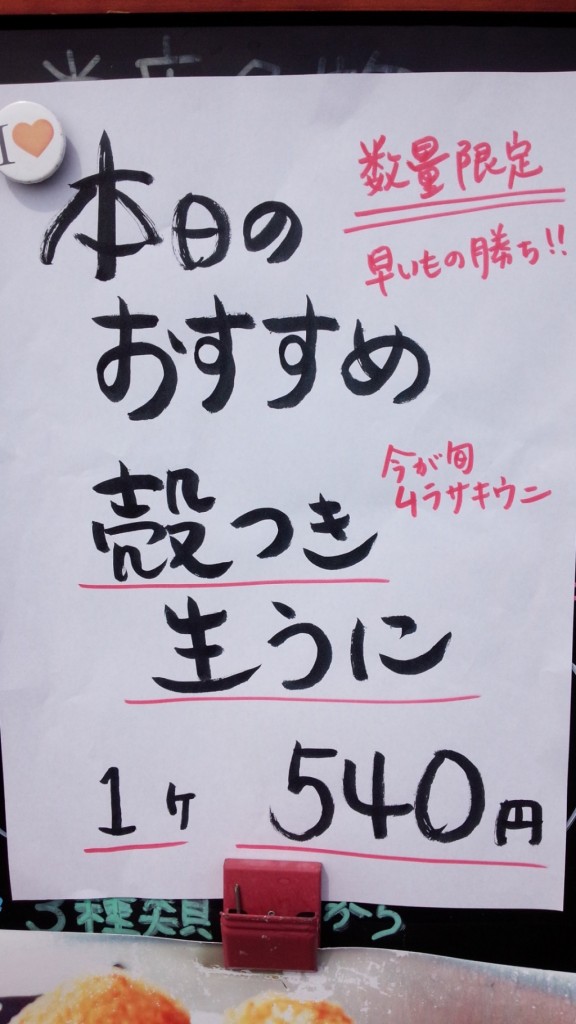 I
本日の
おすすめ
数量限定
早いもの勝ち!!
殻つき
今が旬
ムラサキウニ
生うに
1ヶ 540円
3種類
から